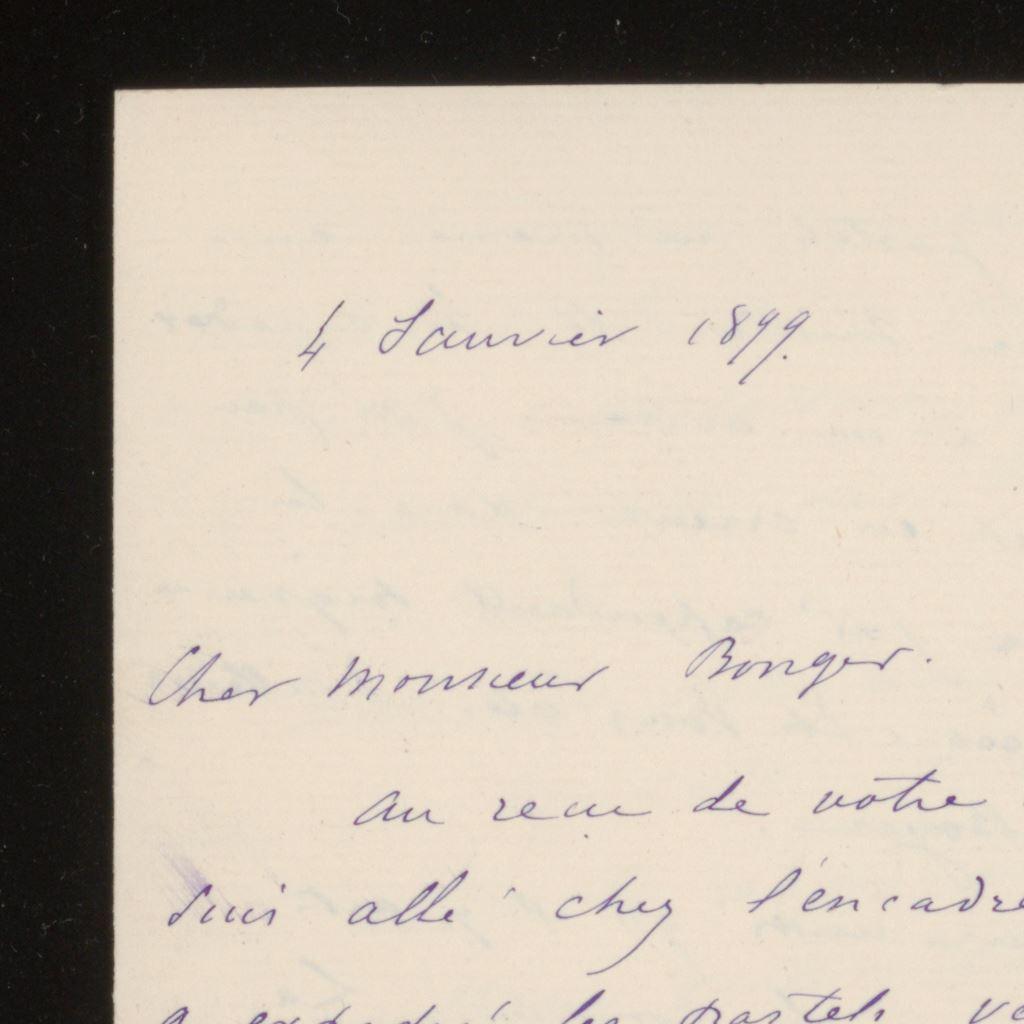 4 Janvier 1899.
Cher Monsieur Bonger.
au recu de votre
suis allé chez l'encadre
a les pastels